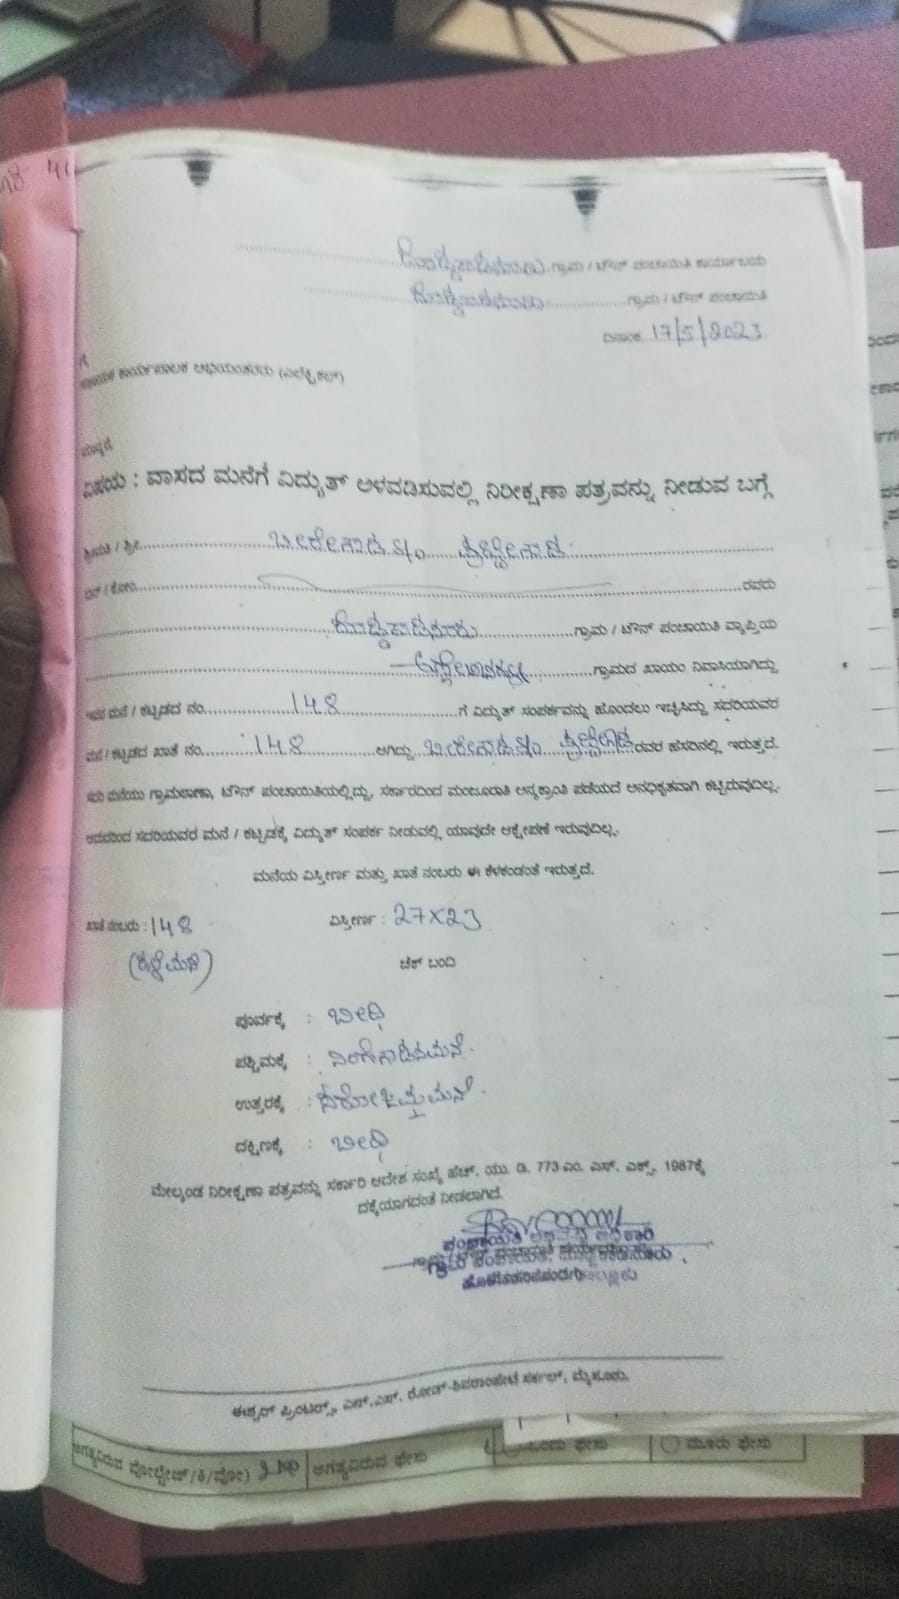 ದೊಡ್ಡಕಾಡನೂರು ಗ್ರಾಮ / ಟೌನ್ ಪಂಚಾಯಿತಿ ಕಾರ್ಯಾಲಯ
ದೊಡ್ಡಕಾಡನೂರು ಗ್ರಾಮ / ಟೌನ್ ಪಂಚಾಯಿತಿ
ದಿನಾಂಕ 17/5/2023
ಕಾರ್ಯಪಾಲಕ ಅಭಿಯಂತರರು (ಎಲೆಕ್ಟ್ರಿಕಲ್)
ಮಾನ್ಯರೆ
ವಿಷಯ : ವಾಸದ ಮನೆಗೆ ವಿದ್ಯುತ್ ಅಳವಡಿಸುವಲ್ಲಿ ನಿರೀಕ್ಷಣಾ ಪತ್ರವನ್ನು ನೀಡುವ ಬಗ್ಗೆ
ಶ್ರೀಮತಿ / ಶ್ರೀ
ಬಿನ್ / ಕೋಂ ರವರು
ದೊಡ್ಡಕಾಡನೂರು ಗ್ರಾಮ / ಟೌನ್ ಪಂಚಾಯಿತಿ ವ್ಯಾಪ್ತಿಯ
ಗ್ರಾಮದ ಖಾಯಂ ನಿವಾಸಿಯಾಗಿದ್ದು
ಇವರ ಮನೆ / ಕಟ್ಟಡದ ನಂ. 148 ಗೆ ವಿದ್ಯುತ್ ಸಂಪರ್ಕವನ್ನು ಹೊಂದಲು ಇಚ್ಛಿಸಿದ್ದು ಸದರಿಯವರ
ಮನೆ / ಕಟ್ಟಡದ ಖಾತೆ ನಂ. 148 ಆಗಿದ್ದು ರವರ ಹೆಸರಿನಲ್ಲಿ ಇರುತ್ತದೆ.
ಸದರಿ ಮನೆಯು ಗ್ರಾಮಠಾಣಾ, ಟೌನ್ ಪಂಚಾಯಿತಿಯಲ್ಲಿದ್ದು, ಸರ್ಕಾರದಿಂದ ಮಂಜೂರಾತಿ ಅನ್ಯಕ್ರಾಂತಿ ಪಡೆಯದೆ ಅನಧಿಕೃತವಾಗಿ ಕಟ್ಟಿರುವುದಿಲ್ಲ.
ಆದುದರಿಂದ ಸದರಿಯವರ ಮನೆ / ಕಟ್ಟಡಕ್ಕೆ ವಿದ್ಯುತ್ ಸಂಪರ್ಕ ನೀಡುವಲ್ಲಿ ಯಾವುದೇ ಆಕ್ಷೇಪಣೆ ಇರುವುದಿಲ್ಲ.
ಮನೆಯ ವಿಸ್ತೀರ್ಣ ಮತ್ತು ಖಾತೆ ನಂಬರು ಈ ಕೆಳಕಂಡಂತೆ ಇರುತ್ತದೆ.
ಖಾತೆ ನಂಬರು : 148 ವಿಸ್ತೀರ್ಣ : 27X23
ಚೆಕ್ ಬಂದಿ
ಪೂರ್ವಕ್ಕೆ : ಬೀದಿ
ಪಶ್ಚಿಮಕ್ಕೆ : ನಿಂಗೇಗೌಡನಮನೆ.
ಉತ್ತರಕ್ಕೆ : ಸರೋಜಮ್ಮಮನೆ.
ದಕ್ಷಿಣಕ್ಕೆ : ಬೀದಿ
ಮೇಲ್ಕಂಡ ನಿರೀಕ್ಷಣಾ ಪತ್ರವನ್ನು ಸರ್ಕಾರಿ ಆದೇಶ ಸಂಖ್ಯೆ ಹೆಚ್. ಯು. ಡಿ. 773 ಎಂ. ಎನ್. ಎಕ್ಸ್. 1987ಕ್ಕೆ
ದಕ್ಕೆಯಾಗದಂತೆ ನೀಡಲಾಗಿದೆ.
ಪಂಚಾಯತಿ ಅಭಿವೃದ್ಧಿ ಅಧಿಕಾರಿ
ಈಶ್ವರ್ ಪ್ರಿಂಟರ್ಸ್, ಎನ್.ಎಸ್. ರೋಡ್-ಶಿವರಾಂಪೇಟೆ ಸರ್ಕಲ್, ಮೈಸೂರು.
ಅಗತ್ಯವಿರುವ ವೋಲ್ಟೇಜ್ ಅಗತ್ಯವಿರುವ ಫೇಸು ಒಂದು ಫೇಸು ಮೂರು ಫೇಸು